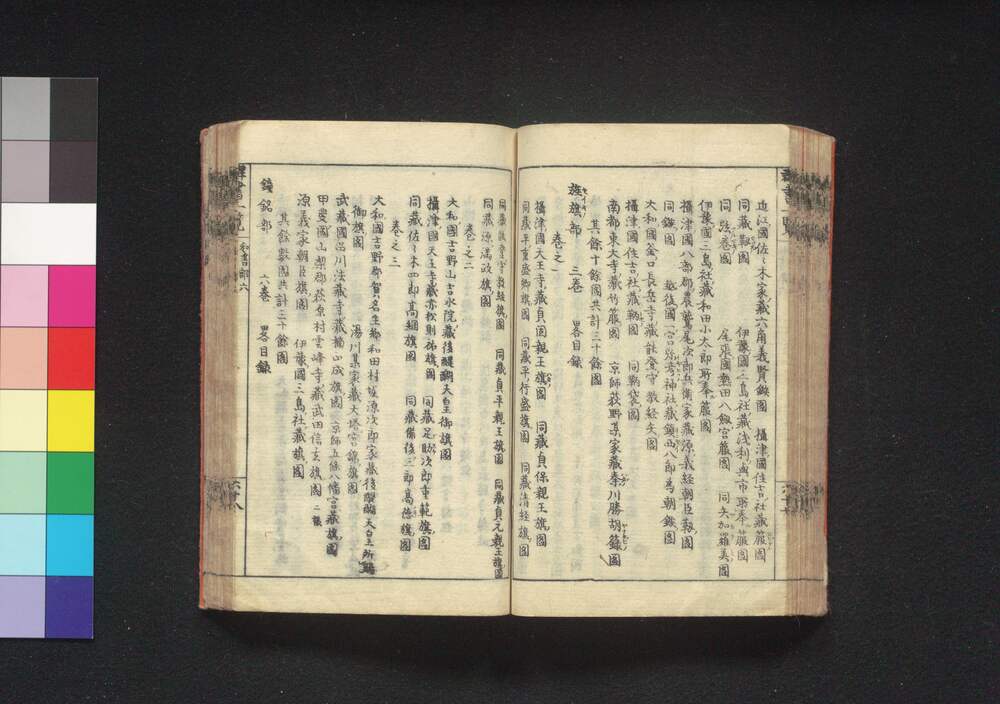 近江國佐々木家藏六角義賢鎧圖　攝津國住吉社藏箙圖
同藏鞍圖　伊豫國三島社藏淺利與市所奉箙圖
同弦巻圖　尾張國熱田八劔宮箙圖　同矢加羅美圖
伊豫國三島社藏和田小太郎所奉箙圖
攝津國八部郡鷲尾次郎兵衞家藏源義經朝臣靫圖
同鏃圖　越後國一宮弥彦神社藏鎭西八郎為朝鏃圖
大和國釜口長岳寺藏能登守教經矢圖
攝津國住吉社藏鞆圖　同鞆袋圖
南都東大寺藏竹箙圖　京師荻野某家藏秦川勝胡籙圖
其餘十餘圖共計三十餘圖
旌旗部　三卷　畧目録
卷之一
攝津國天王寺藏貞固親王旗圖　同藏貞保親王旗圖
同藏平重盛卿旗圖　同藏平行盛旗圖　同藏清經旗圖
同藏能登守教經旗圖　同藏貞平親王旗圖　同藏貞元親王旗圖
同藏源満政旗圖
卷之二
大和國吉野山吉水院藏後醍醐天皇御旗圖
攝津國天王寺藏赤松則祐旗圖　同藏足助次郎重範旗圖
同藏佐々木四郎高綱旗圖　同藏備後三郎高德旗圖
卷之三
大和國吉野郡賀名生郷和田村堀源次郎家藏後醍醐天皇所賜
御旗圖　湯川某家藏大塔宮錦旗圖
武藏國品川法藏寺藏楠正成旗圖　京師五條八幡宮藏旗圖
甲斐國山梨郡萩原村雲峰寺藏武田信玄旗圖二張
源義家朝臣旗圖　伊豫國三島社藏旗圖
其餘數圖共計三十餘圖
鐘銘部　六卷　畧目録
群書一覧
和書部六